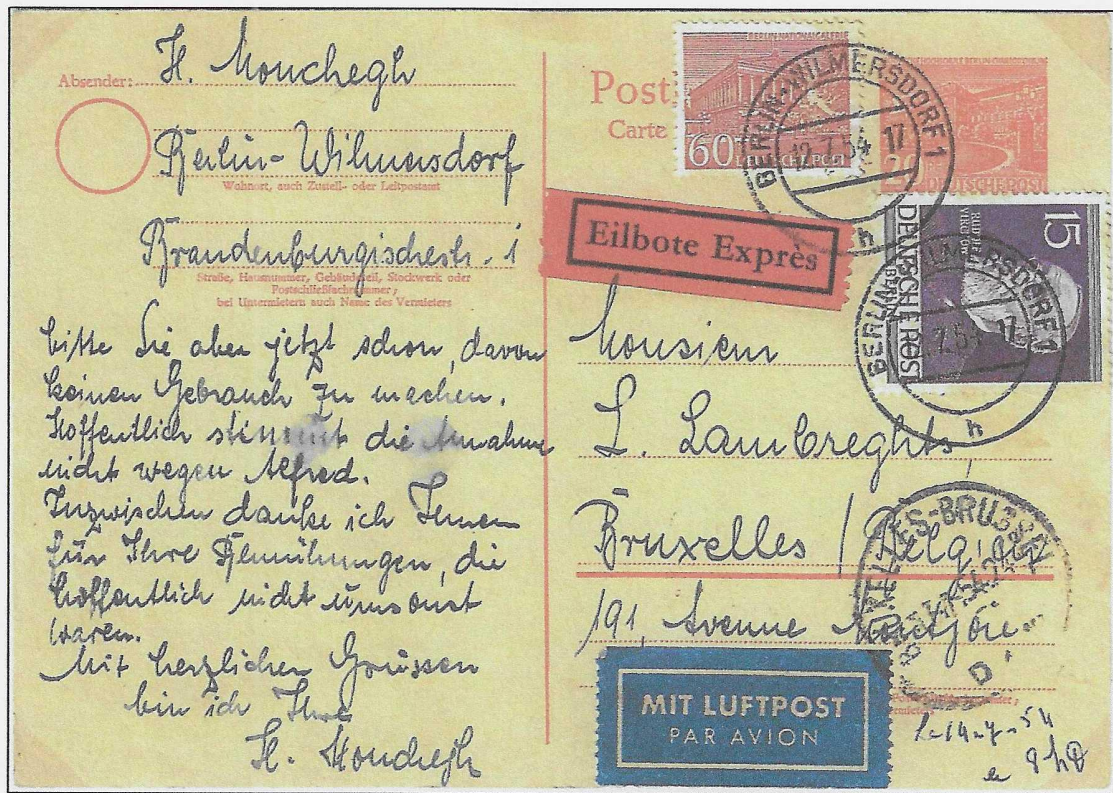 Absender: H. Monchegh
Berlin-Wilmersdorf
Wohnort, auch Zustell- oder Leitpostamt
Brandenburgischestr. 1
Straße, Hausnummer, Gebäudeteil, Stockwerk oder
Postschließfachnummer;
bei Untermietern auch Name des Vermieters
bitte Sie aber jetzt schon, davon
keinen Gebrauch zu machen.
Hoffentlich stimmt die Annahme
nicht wegen Alfred.
Inzwischen danke ich Ihnen
für Ihre Bemühungen, die
hoffentlich nicht umsonst
waren.
Mit herzlichen Grüssen
bin ich Ihre
H. Monchegh
Post
Carte
BERLIN-NATIONALGALERIE
60 DEUTSCHE POST
BERLIN-WILMERSDORF 1
12.7.54 17
h
20
DEUTSCHE POST
Eilbote Exprès
15
DEUTSCHE POST
BERLIN
BERLIN-WILMERSDORF 1
.7.54 17
h
Monsieur
L. Lambreghts,
Bruxelles / Belgien
191, Avenue Montjoie
BRUXELLES-BRUSSEL
D
MIT LUFTPOST
PAR AVION
14-7-54